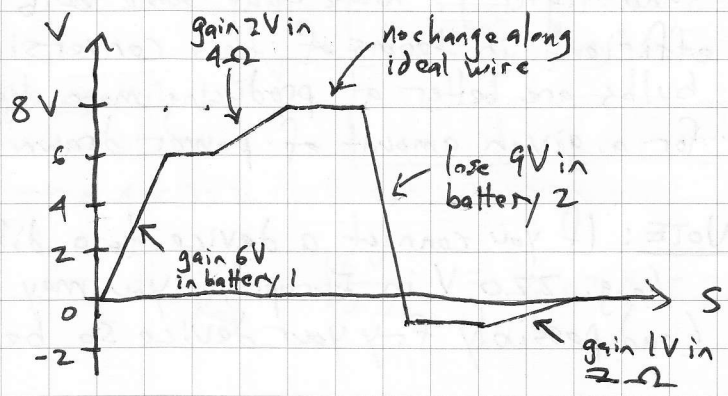 V
gain 2V in
4Ω
no change along
ideal wire
8 V
6
4
2
0
-2
lose 9V in
battery 2
gain 6V
in battery 1
S
gain 1V in
2 Ω